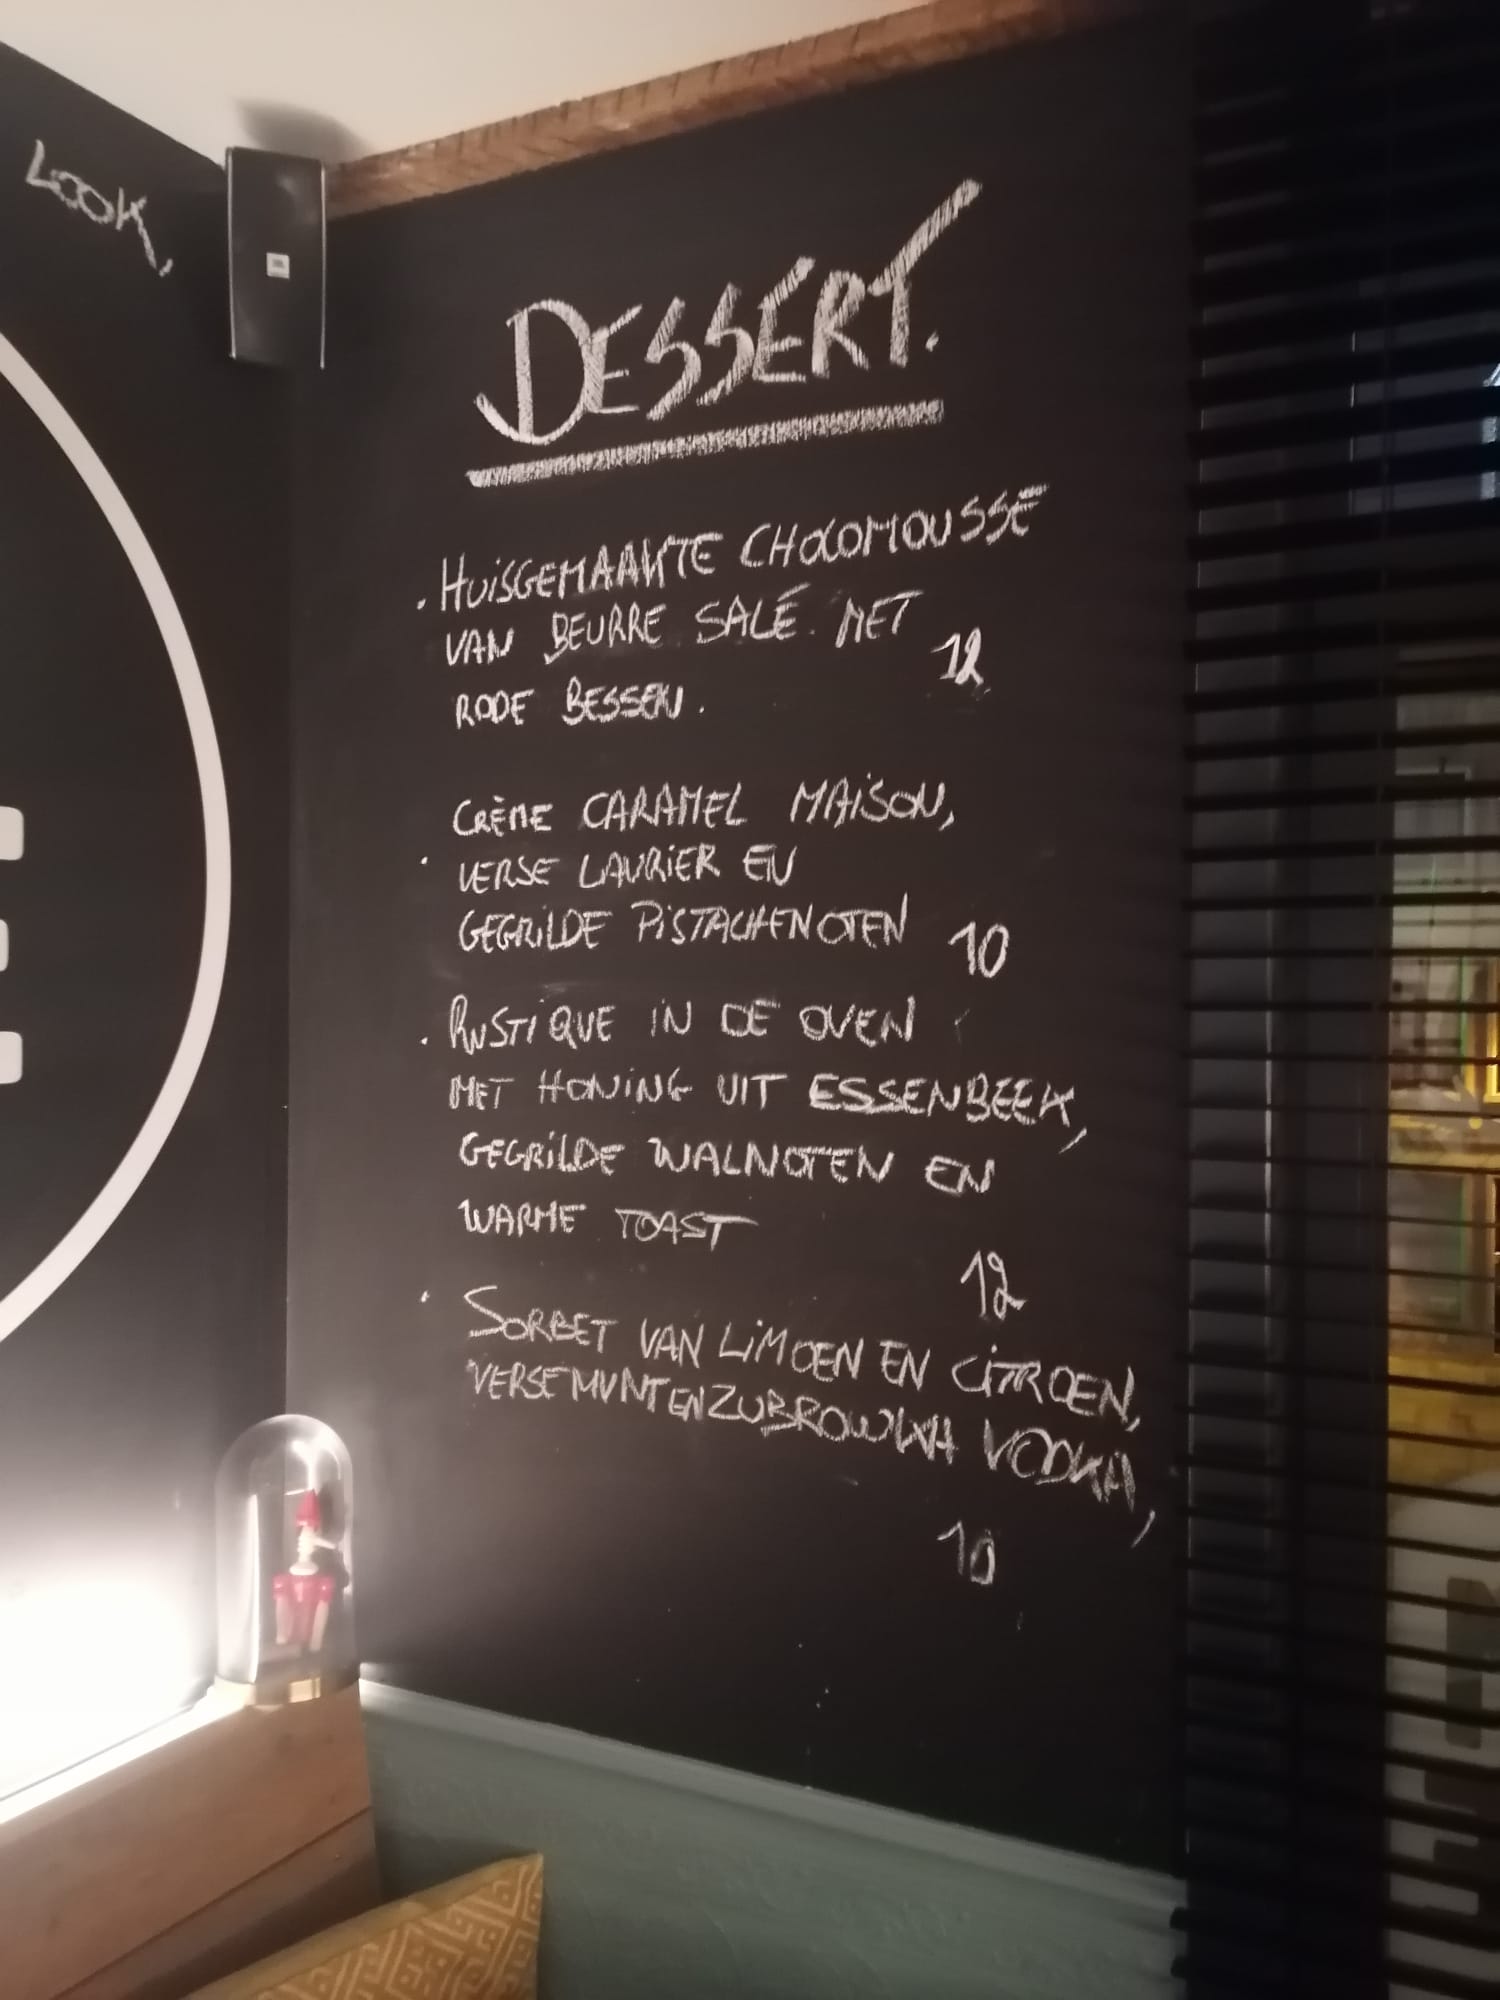 LOOK,
DESSERT.
. HUISGEMAAKTE CHOCOMOUSSE
VAN BEURRE SALÉ. MET
12
RODE BESSEN.
CRÈME CARAMEL MAISON,
. VERSE LAURIER EN
GEGRILDE PISTACHENOTEN 10
. RUSTIQUE IN DE OVEN
MET HONING UIT ESSENBEEK,
GEGRILDE WALNOTEN EN
WARME TOAST
12
. SORBET VAN LIMOEN EN CITROEN,
VERSE MUNT EN ZUBROWKA VODKA,
10